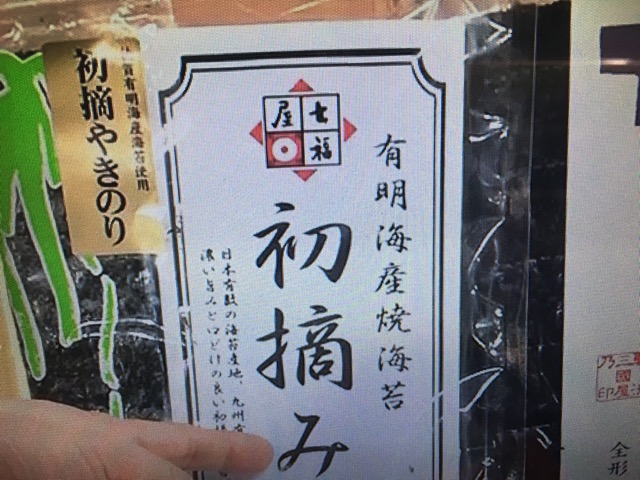 質有明海産海苔使用
初摘やきのり
七福
屋
有明海産焼海苔
初摘み
日本有数の海苔産地、九州有
濃い旨みと口どけの良い初摘
全形